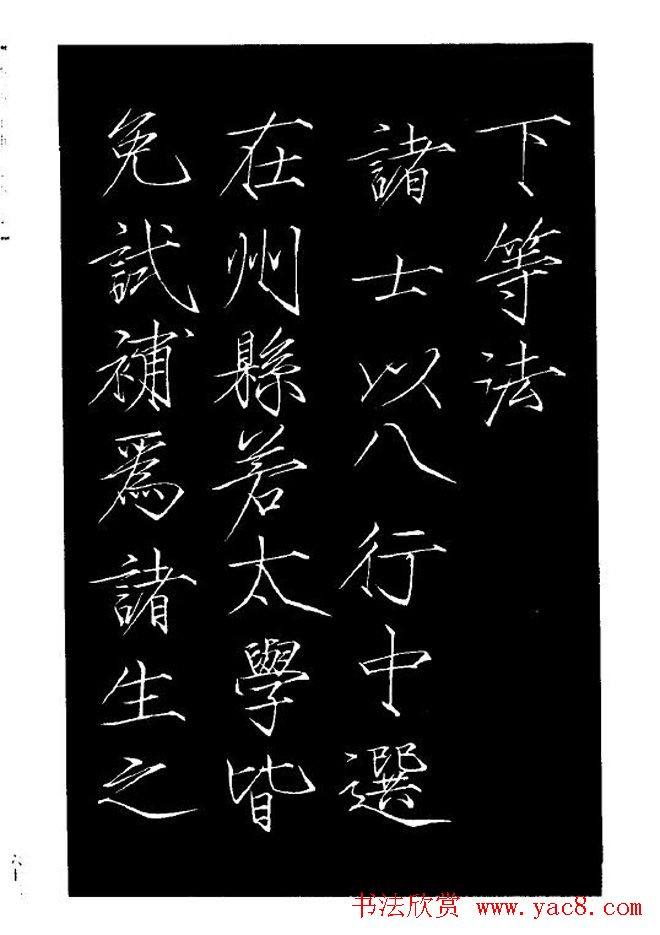 下等法
諸士以八行中選
在州縣若太學皆
免試補爲諸生之
书法欣赏 www.yac8.com